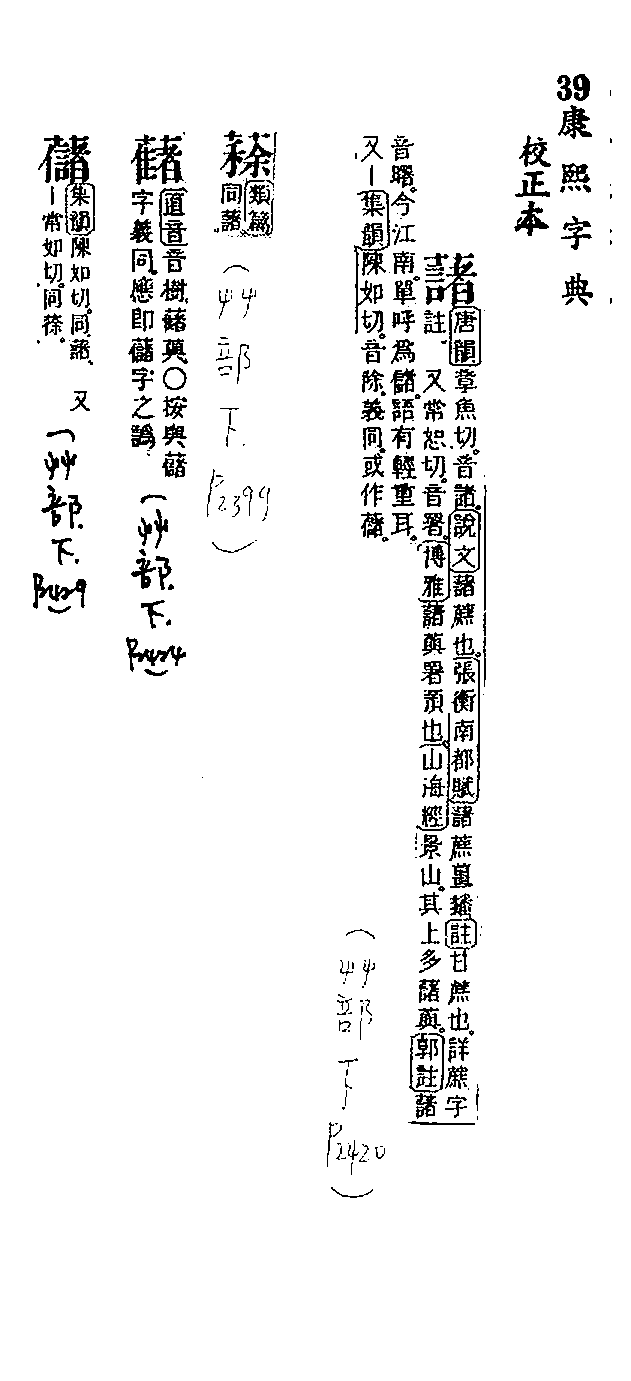 39康熙字典
校正本
藷
唐韻章魚切。音諸。說文藷蔗也。張衡南都賦藷蔗薑註甘蔗也。詳蔗字
註 又常恕切。音署。博雅藷藇署預也。山海經景山。其上多藷藇。郭註藷
音曙。今江南單呼爲儲。語有輕重耳。
又丨集韻陳如切。音除。義同。或作
(艸部下 P2420)
蒣
類篇
同藷
(艸部下 P2399)
直音音樹藷藇○按與藷
字義同應即藷字之譌
(艸部下 P2424)
集韻陳如切。同藷。又
丨常如切。同蒣。
(艸部下 P2429)